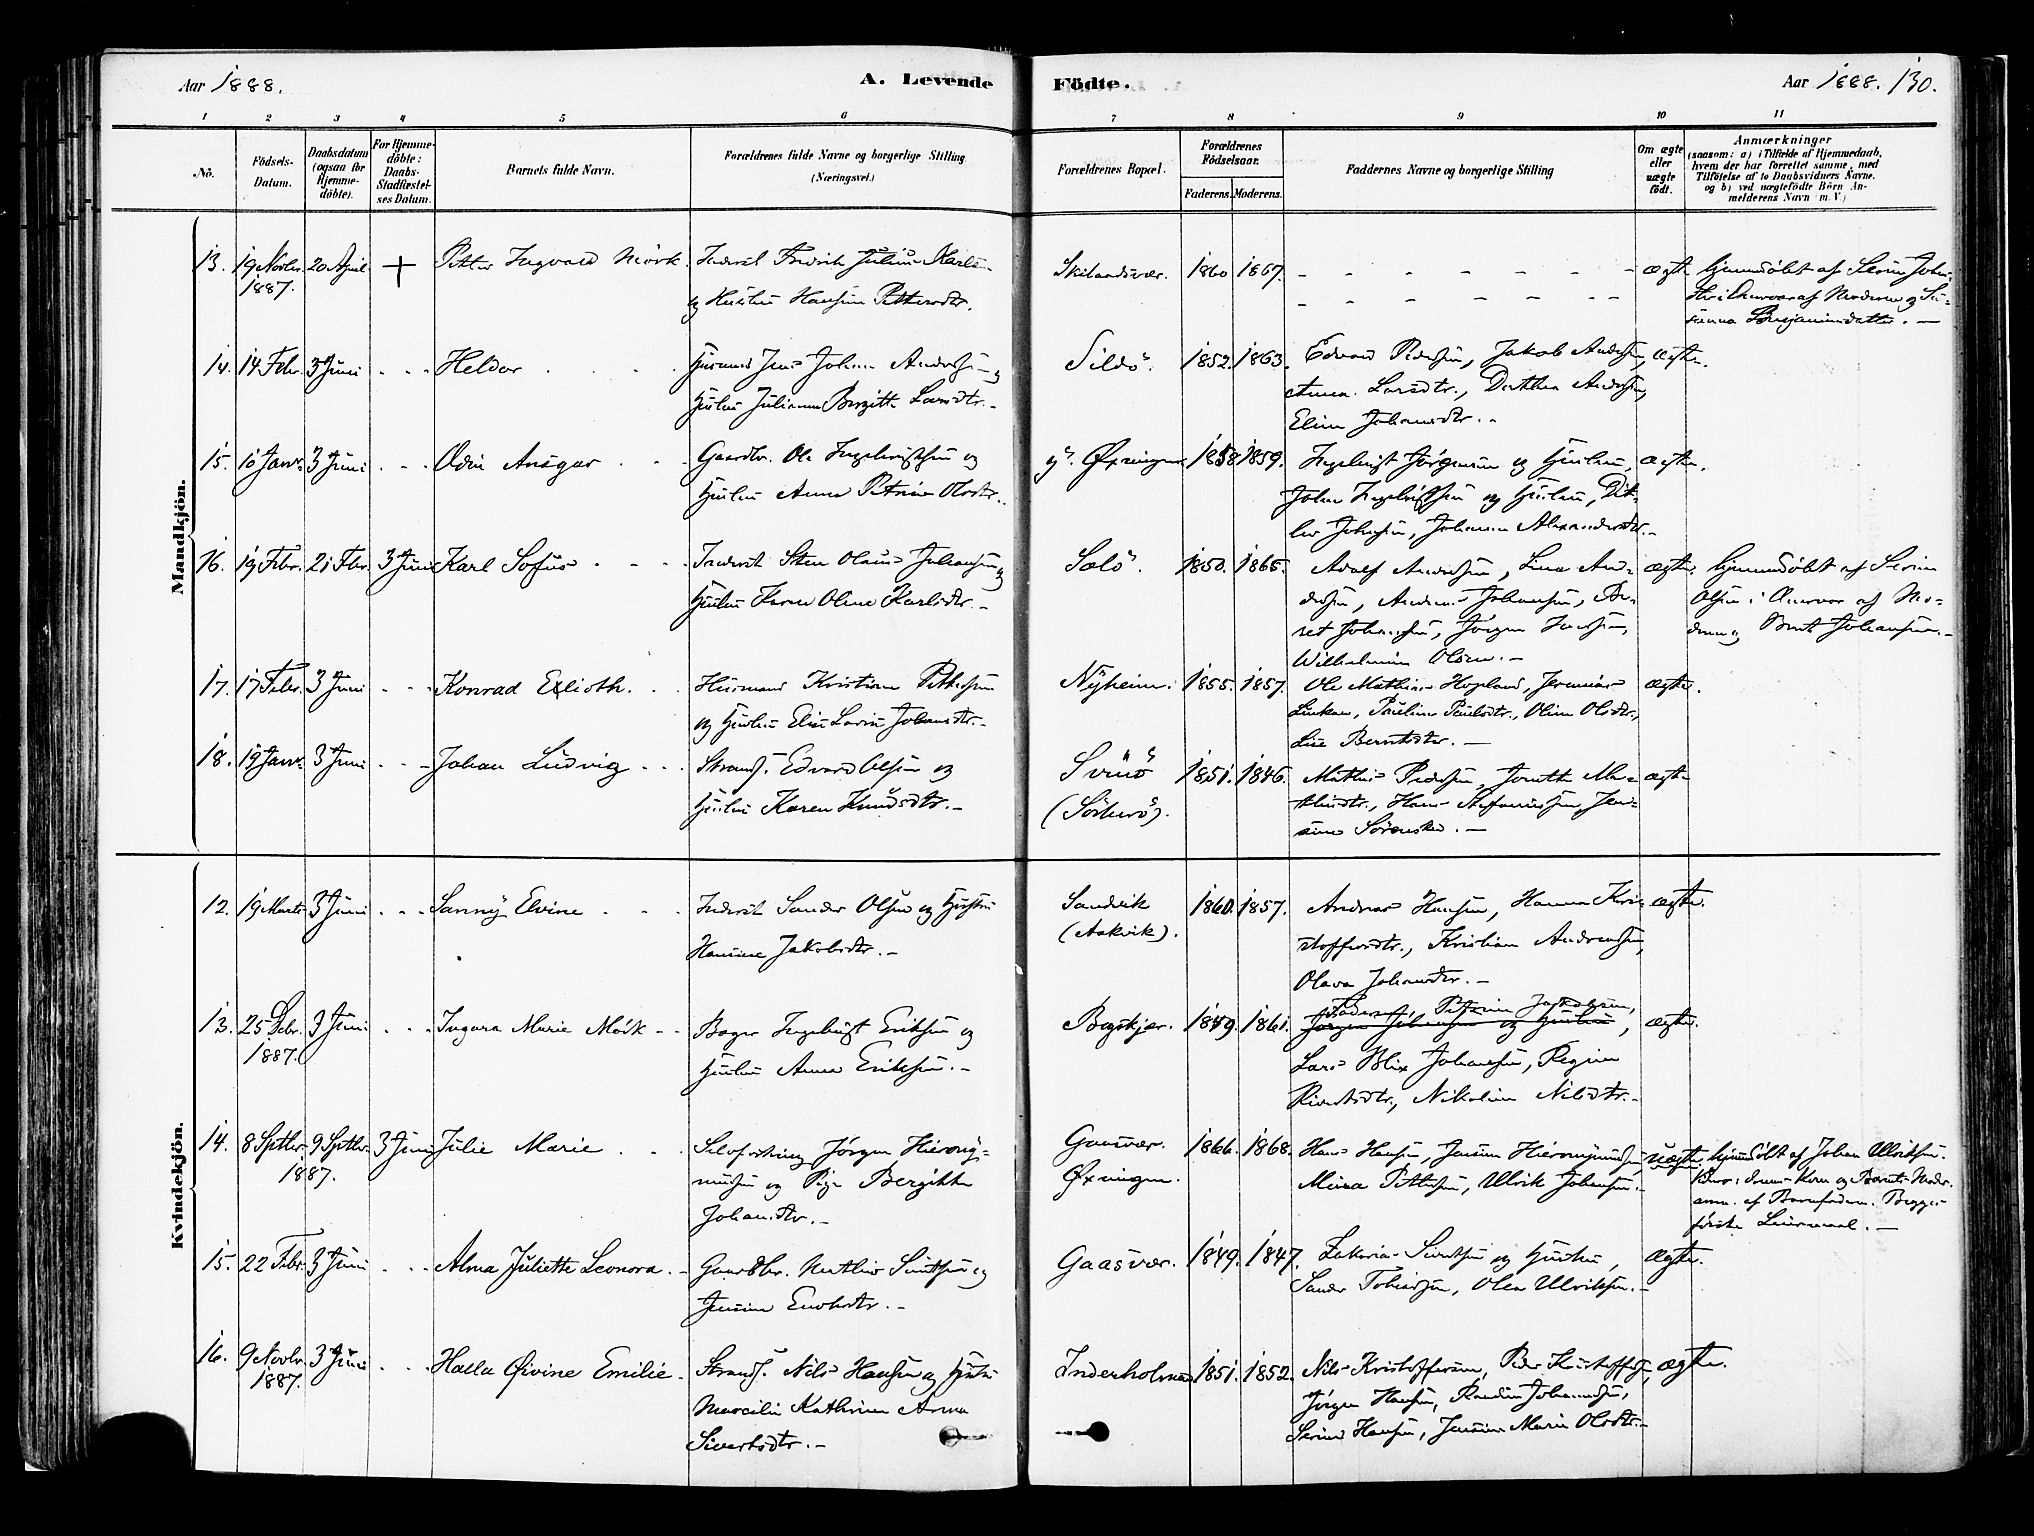 Aar 1888.
A. Levende
Födte.
Aar 1888. 130.
1 2 3 4 5 6 7 8 9 10 11
Nò.
Födsels-
Datum.
Daabsdatum
(ogsaa för
Hjemme-
döbte).
For Hjemme-
döbte:
Daabs-
Stadfæstel-
ses Datum.
Barnets fulde Navn.
Forældrenes fulde Navne og borgerlige Stilling
(Næringsvei.)
Forældrenes Bopæl.
Forældrenes
Födselsaar.
Faderens.
Moderens.
Faddernes Navne og borgerlige Stilling
Om ægte
eller
uægte
födt.
Anmærkninger
(saasom: a) i Tilfælde af Hjemmedaab,
hvem der har forrettet samme, med
Tilföielse af to Daabsvidners Navne.
og b) ved uægtefödte Börn An-
melderens Navn m. V.)
Mandkjön.
13. 19 Novbr. 20 April + Petter Ingvald Mörk. Inderst Fredrik Julius Karls-
1887.
og Hustru Hansine Pettersdtr.
Skilandsvær. 1860 1867. ægte hjemmedöbt af
Susanna Benjaminsdatter. —
14. 14 Febr. 3 Juni Heldor Husmand Jens Johan Andersen og
Hustru Juliane Birgitte Larsdtr. —
Sildö. 1852. 1863. Edvard Pedersen, Jakob Andersen, ægte.
Anna Larsdtr., Dorthea Andersen,
Eline Johansdtr. —
15. 10 Janr. 3 Juni Odin Ansgar Gaardbr. Ole Ingebrigtsen og
Hustru Anna Petrine Olsdtr.
y. Øxningen 1858 1859. Ingebrigt Jörgensen og Hustru, ægte.
Johan Ingebrigtsen og Hustru, Dit-
lev Johnsen, Johanna Alexandersdtr. —
16. 19 Febr. 21 Febr. 3 Juni Karl Sofus Inderst Sten Olaus Johansen og
Hustru Karen Oline Karlsdtr. —
Salö. 1850. 1865. Adolf Andersen, Lina An-
dersen, Andreas Johansen, Be-
ret Johansen, Jörgen
Wilhelmine Olsen. —
ægte. hjemmedöbt af Serine
Olsen i Overvær af Mo-
deren og Berit Johansen. —
17. 17 Febr. 3 Juni Konrad Elioth. Husmand Kristian Pettersen
og Hustru Elen Larine Johansdtr. —
Nyheim. 1855. 1857. Ole Mathias Hopland, Jeremias
Pauline Paulsdtr., Oline Olsdtr.,
Lise Berntsdtr. —
ægte.
18. 19 Janr. 3 Juni Johan Ludvig Strands. Edvard Olsen og
Hustru Karen Knudsdtr. —
Svinö
(Sörherö).
1851. 1846. Mathias Pedersen, Dorothea Ma-
thisdtr., Hans Stefanussen, Jen-
sine Sörensdtr. —
ægte
Kvindekjön.
12. 19 Marts 3 Juni Sanny Elvine Inderst Sander Olsen og Hustru
Hansine Jakobsdtr. —
Sandvik
(Aakvik).
1860. 1857. Andreas Hansen, Hanna Kri-
stoffersdtr., Kristian Andreassen,
Olava Johansdtr. —
ægte.
13. 25 Decbr. 3 Juni Ingara Marie Mörk Bager Ingebrigt Eriksen og
1887.
Hustru Anna Eriksen. —
Bogskjær. 1859. 1861. Faderen, Petrine Jakobsen,
Jörgen Johansen og Hustru, ægte.
Lars Blix Johansen, Regine
Sivertsdtr., Nikoline Nilsdtr. —
14. 8 Septbr. 9 Septbr. 3 Juni Julie Marie Selvforsörg. Jörgen Hierony-
1887.
mussen og Pige Bergitte
Johansdtr. —
Gaasvær.
Øxningen.
1866. 1868. Hans Hansen, Jensine Hieronymussen, uægte.
Pettersen, Ulrik Johansen. —
hjemmedöbt af Johan Ulriksen.
anm. af Barnefaderen. Begges
förste Leiermaal. —
15. 22 Febr. 3 Juni Alma Juliette Leonora. Gaardbr. Mathias Sivertsen og
Jensine Enoksdtr. —
Gaasvær. 1849. 1847. Zakarias Sivertsen og Hustru,
Sander Tobiassen, Olea Ulriksen. —
ægte.
16. 9 Novbr. 3 Juni Halla Øivine Emilie. Strands. Nils Hansen og Hustru
1887.
Marcelie Kathrine Anna
Sivertsdtr. —
Inderholmen 1851. 1852. Nils Kristoffersen, Peder Kristoffersen, ægte.
Jörgen Hansen, Johannessen,
Serine Hansen, Jensine Marie Olsdtr. —